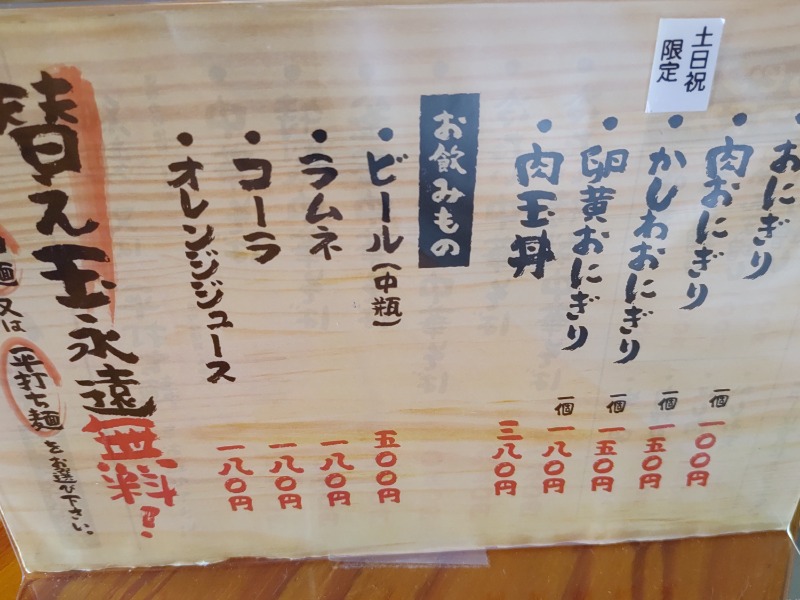 おにぎり 一個 一〇〇円
・肉おにぎり 一個 一五〇円
土日祝
限定
・かしわおにぎり 一個 一五〇円
・卵黄おにぎり 一個 一八〇円
・肉玉丼 三八〇円
お飲みもの
・ビール(中瓶) 五〇〇円
・ラムネ 一八〇円
・コーラ 一八〇円
・オレンジジュース 一八〇円
替え玉永遠無料!
麺 又は 平打ち麺 をお選び下さい。